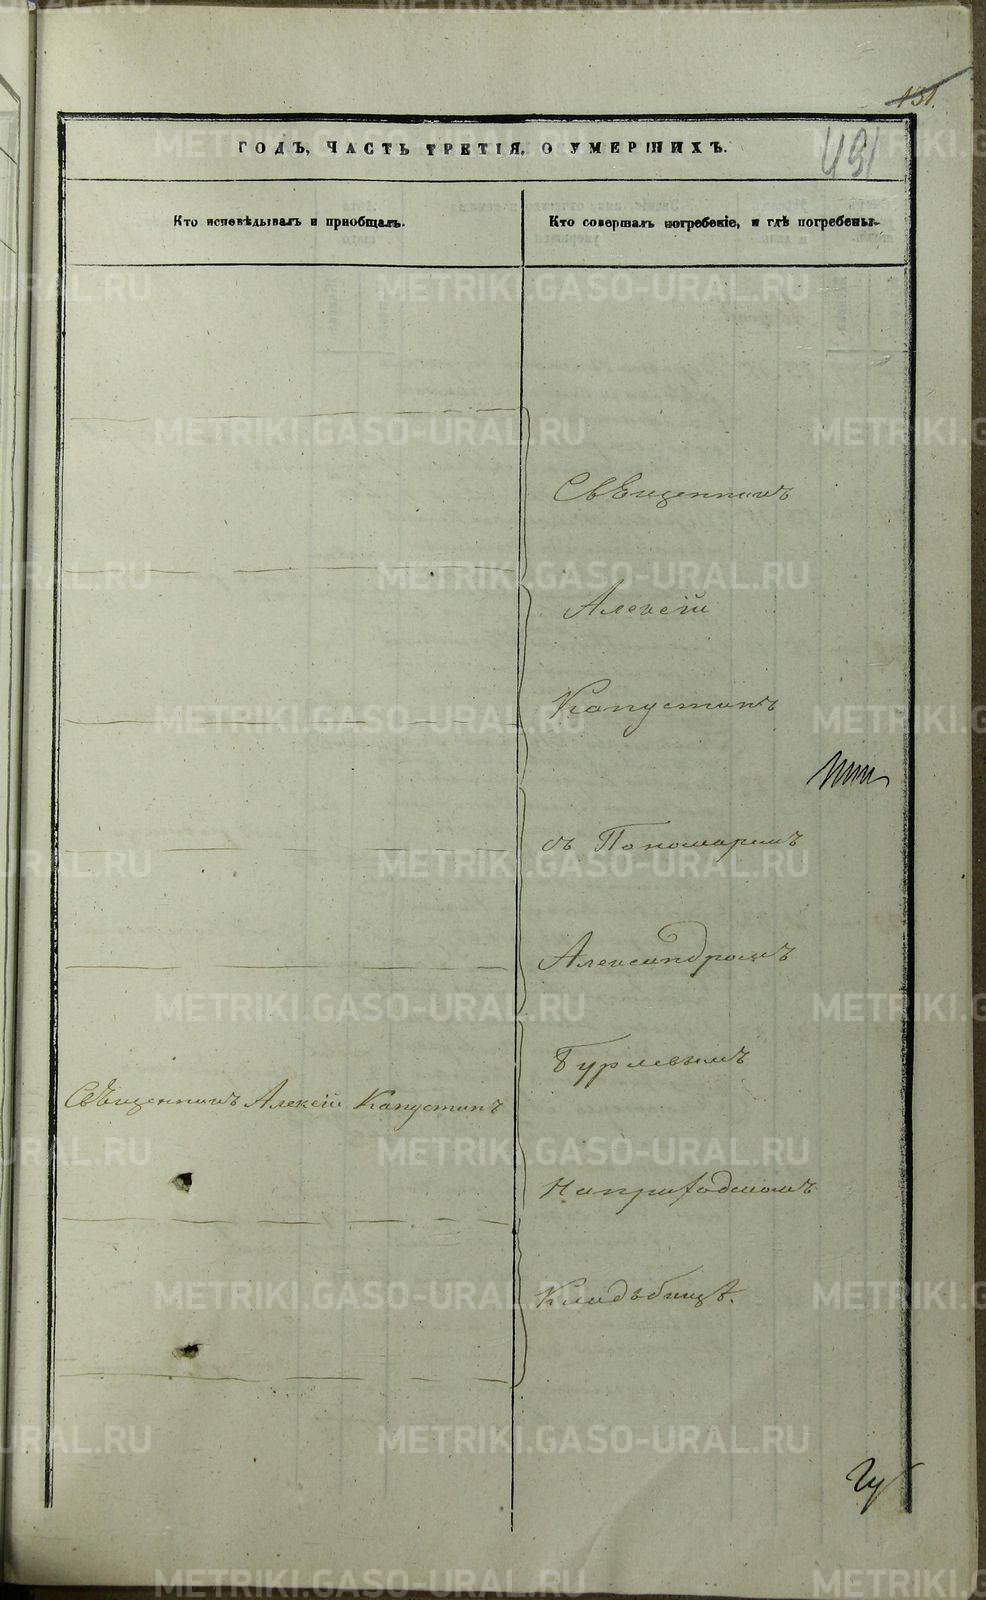 131.
431
ГОДЪ, ЧАСТЬ ТРЕТІЯ, О УМЕРШИХЪ.
Кто исповѣдывалъ и пріобщалъ.
Кто совершалъ погребеніе, и гдѣ погребены.
Священникъ
Алексій
Капустинъ
съ Пономаремъ
Александромъ
Бурлевымъ
Священникъ Алексій Капустинъ
на приходскомъ
Кладъбищѣ.
METRIKI.GASO-URAL.RU